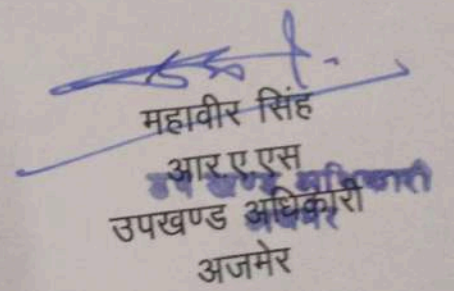 महावीर सिंह
आर.ए.एस
उप खण्ड अधिकारी
उपखण्ड अधिकारी
अजमेर